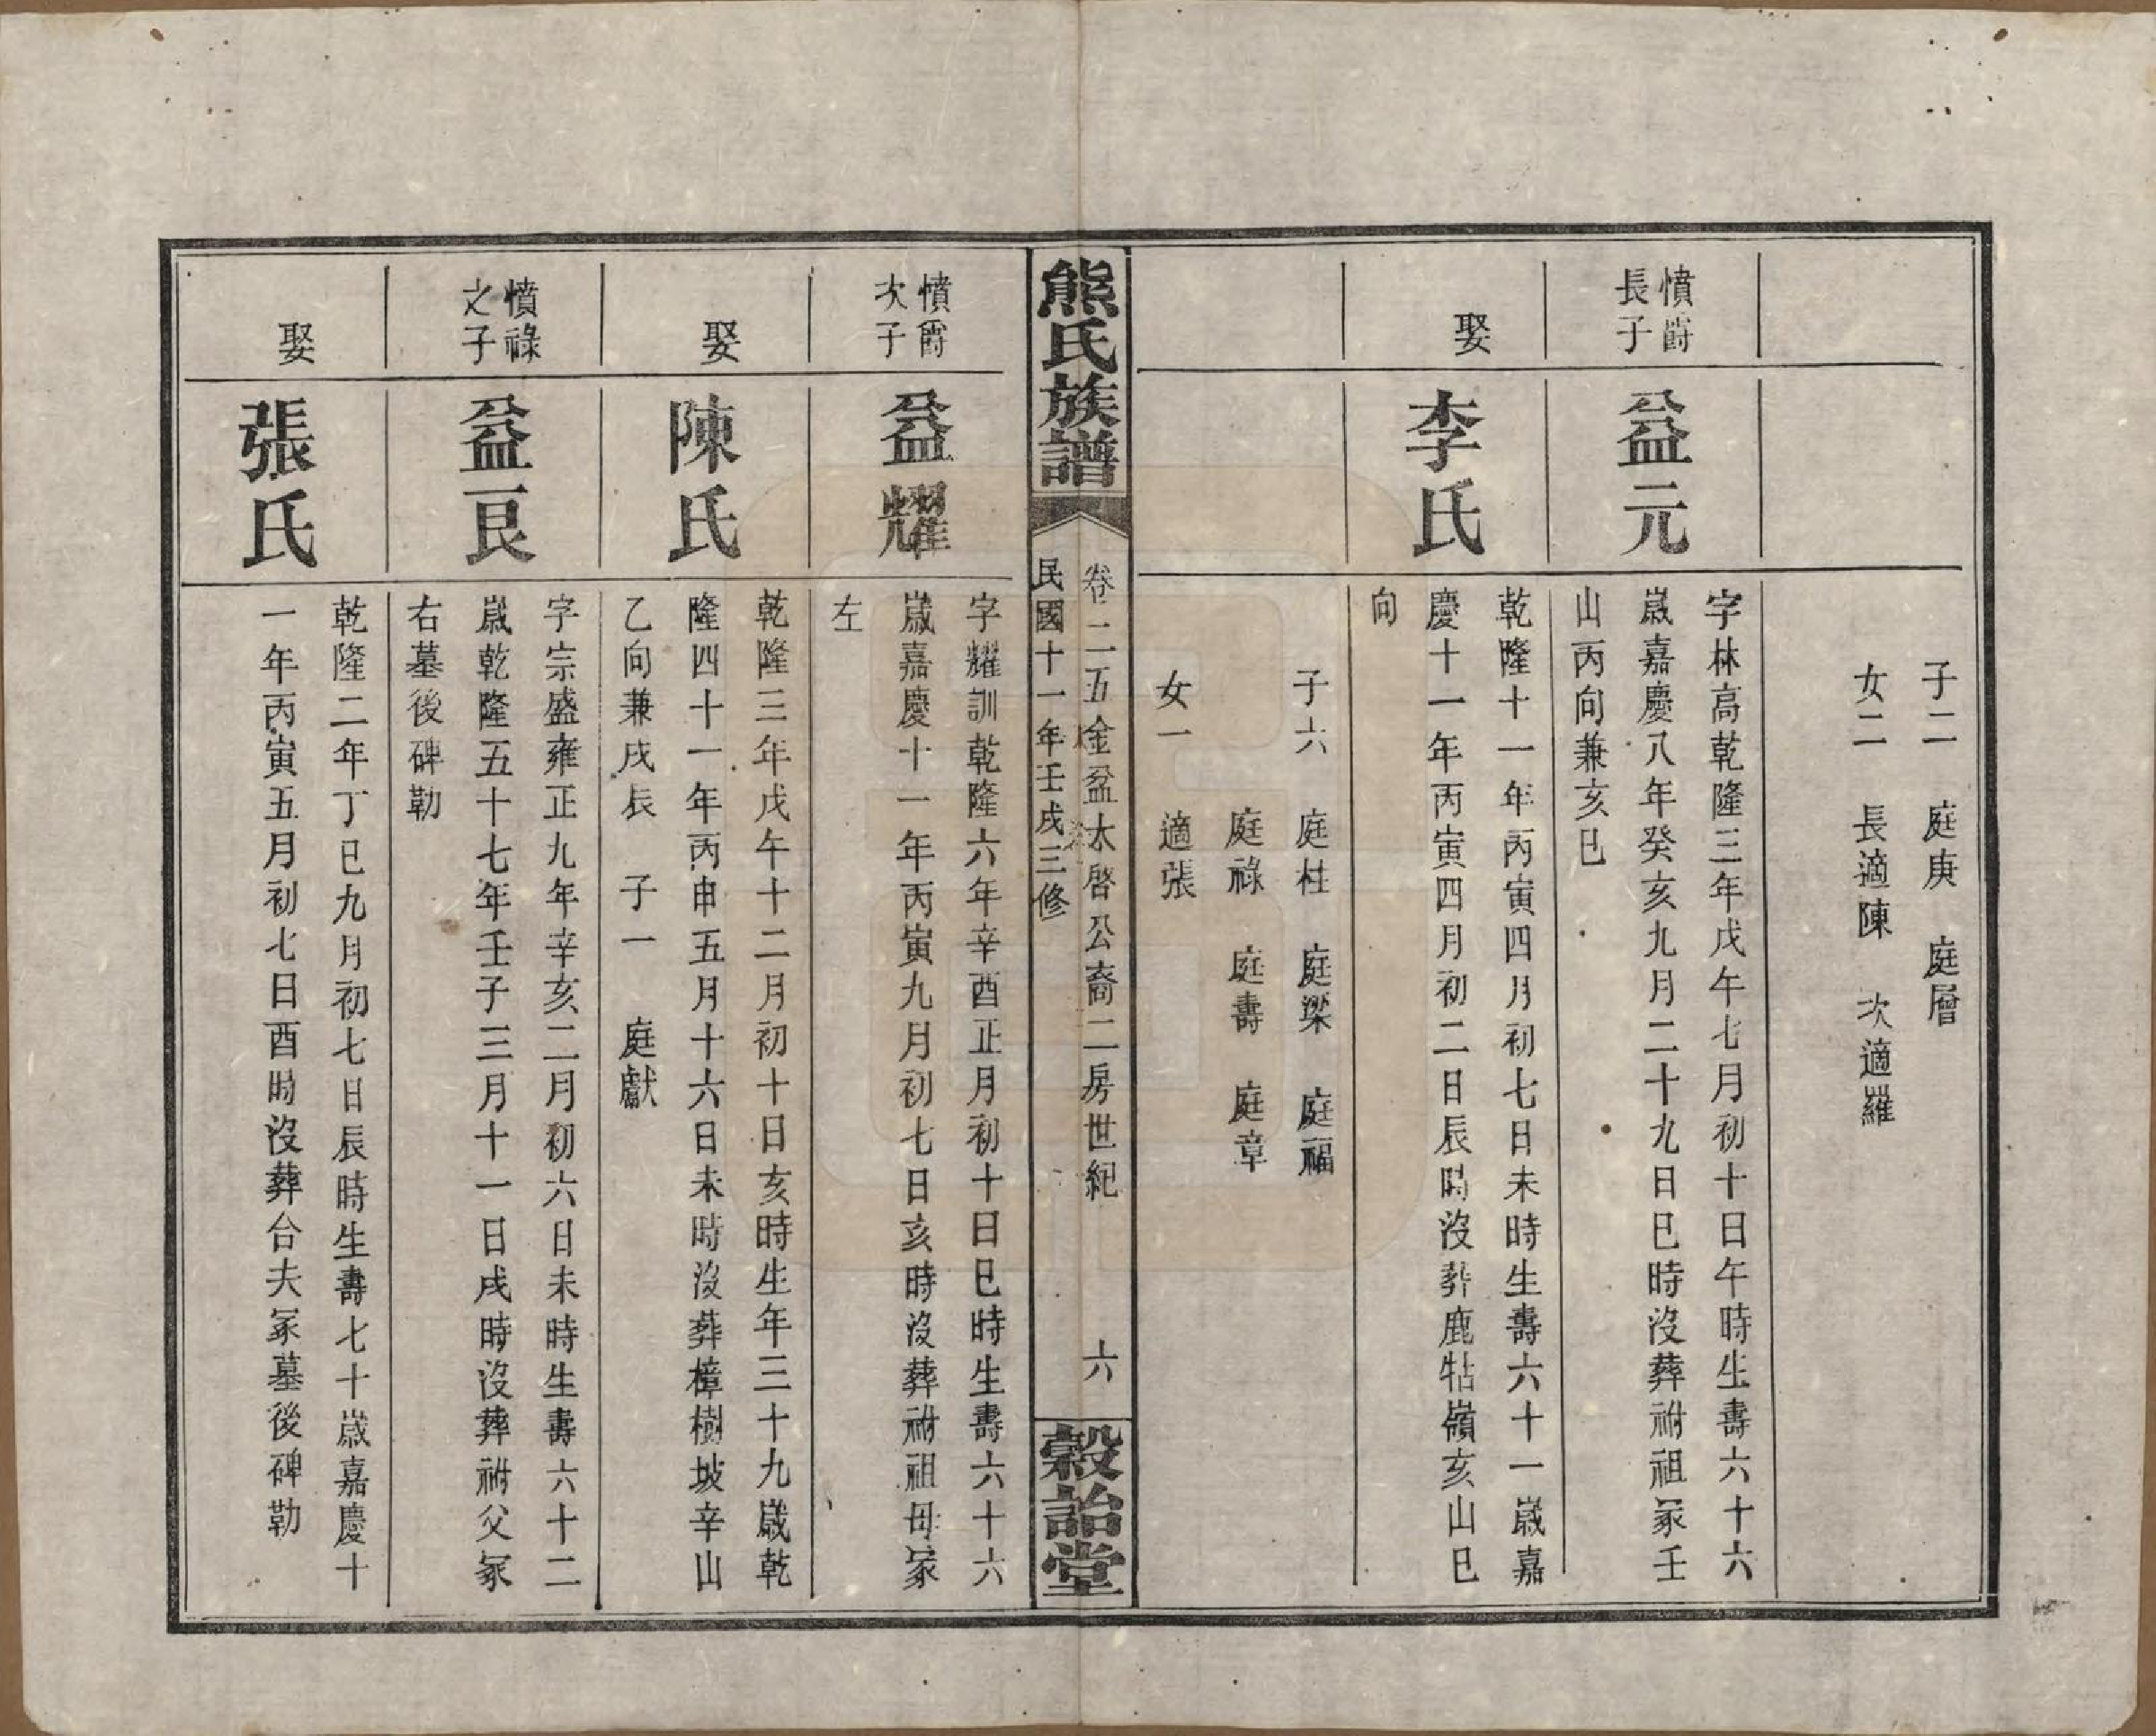 子二 庭庚 庭層
女二 長適陳 次適羅
憤爵
長子
益元
字林高乾隆三年戊午七月初十日午時生壽六十六
歲嘉慶八年癸亥九月二十九日巳時沒葬祔祖冢壬
山丙向兼亥巳
娶
李氏
乾隆十一年丙寅四月初七日未時生壽六十一歲嘉
慶十一年丙寅四月初二日辰時沒葬鹿牯嶺亥山巳
向
子六 庭桂 庭梁 庭福
庭祿 庭壽 庭章
女一 適張
熊氏族譜
卷二五金盆太啓公裔二房世紀 六
民國十一年壬戌三修
穀詒堂
憤爵
次子
益耀
字耀訓乾隆六年辛酉正月初十日巳時生壽六十六
歲嘉慶十一年丙寅九月初七日亥時沒葬祔祖母冢
左
娶
陳氏
乾隆三年戊午十二月初十日亥時生年三十九歲乾
隆四十一年丙申五月十六日未時沒葬樟樹坡辛山
乙向兼戌辰 子一 庭獻
憤祿
之子
益艮
字宗盛雍正九年辛亥二月初六日未時生壽六十二
歲乾隆五十七年壬子三月十一日戌時沒葬祔父冢
右墓後碑勒
娶
張氏
乾隆二年丁巳九月初七日辰時生壽七十歲嘉慶十
一年丙寅五月初七日酉時沒葬合夫冢墓後碑勒